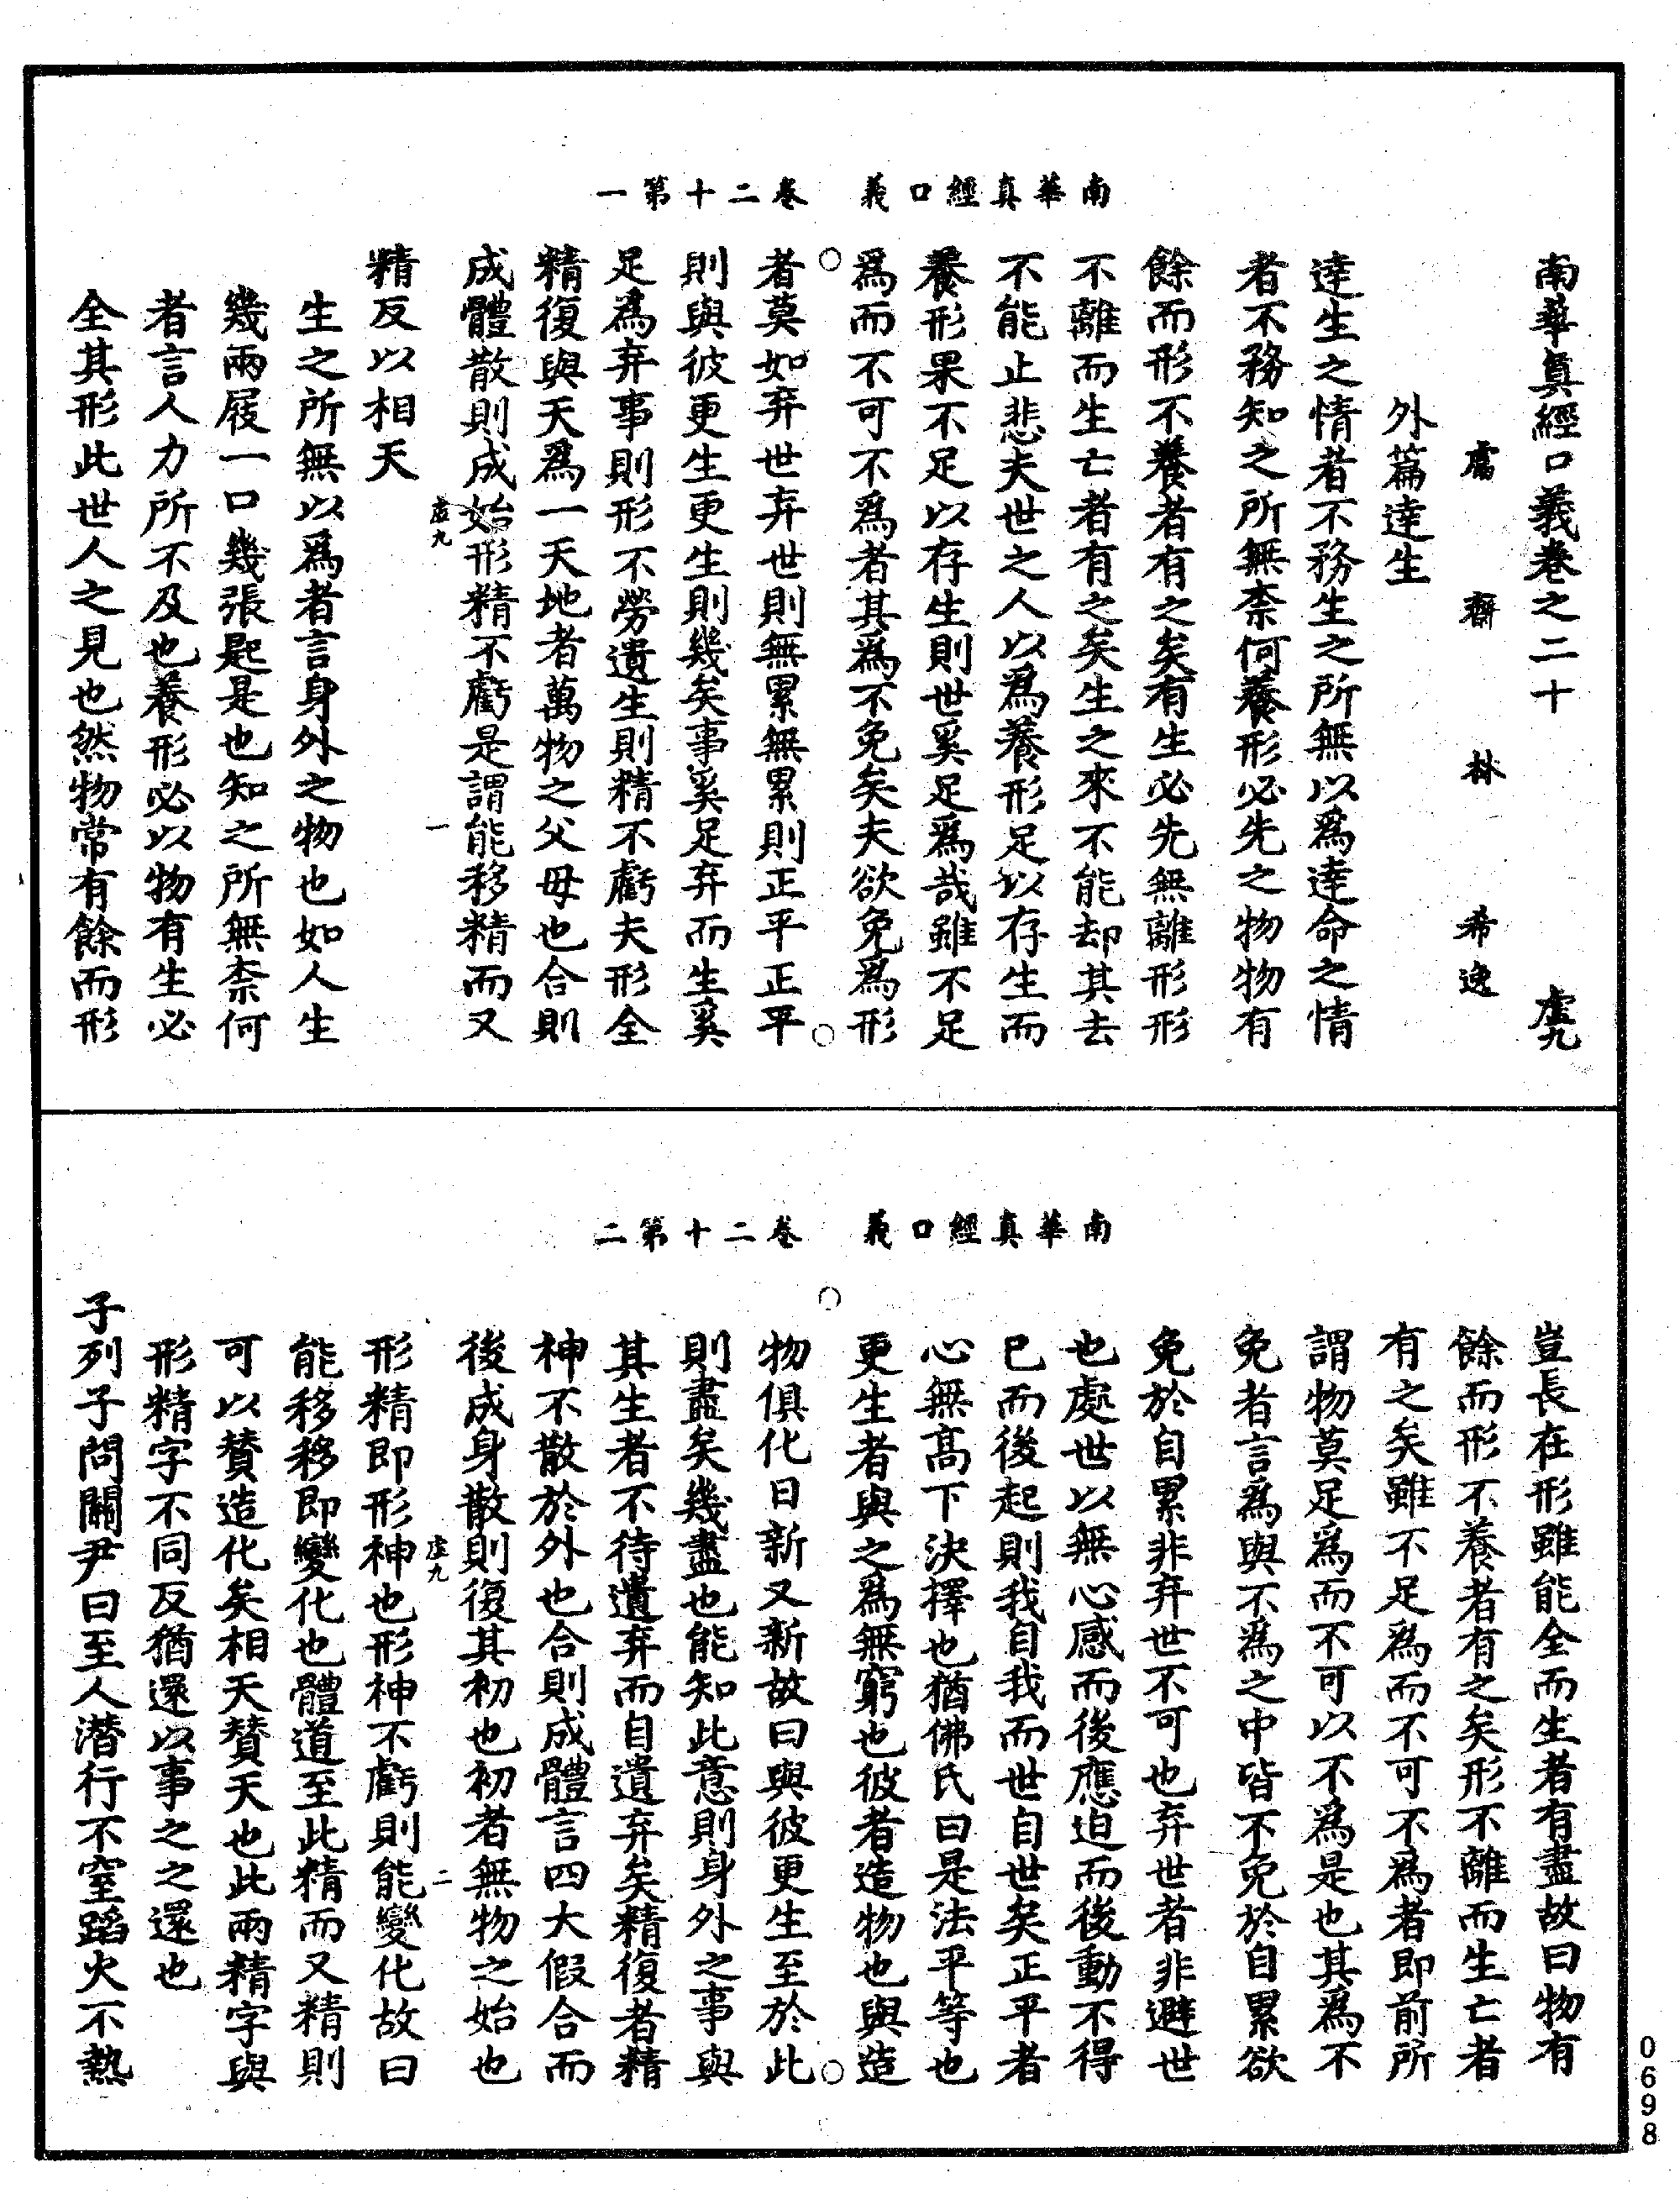 南華真經口義　卷二十第一
南華真經口義卷之二十　虛九
鬳齋林希逸
外篇達生
達生之情者不務生之所無以爲達命之情
者不務知之所無柰何養形必先之物物有
餘而形不養者有之矣有生必先無離形形
不離而生亡者有之矣生之來不能却其去
不能止悲夫世之人以爲養形足以存生而
養形果不足以存生則世奚足爲哉雖不足
爲而不可不爲者其爲不免矣夫欲免爲形
者莫如弃世弃世則無累無累則正平正平
則與彼更生更生則幾矣事奚足弃而生奚
足爲弃事則形不勞遺生則精不虧夫形全
精復與天爲一天地者萬物之父母也合則
成體散則成始形精不虧是謂能移精而又
虛九　一
精反以相天
生之所無以爲者言身外之物也如人生
幾兩屐一口幾張匙是也知之所無柰何
者言人力所不及也養形必以物有生必
全其形此世人之見也然物常有餘而形
南華真經口義　卷二十第二
豈長在形雖能全而生者有盡故曰物有
餘而形不養者有之矣形不離而生亡者
有之矣雖不足爲而不可不爲者即前所
謂物莫足爲而不可以不爲是也其爲不
免者言爲與不爲之中皆不免於自累欲
免於自累非弃世不可也弃世者非避世
也處世以無心感而後應迫而後動不得
已而後起則我自我而世自世矣正平者
心無高下決擇也猶佛氏曰是法平等也
更生者與之爲無窮也彼者造物也與造
物俱化日新又新故曰與彼更生至於此
則盡矣幾盡也能知此意則身外之事與
其生者不待遺弃而自遺弃矣精復者精
神不散於外也合則成體言四大假合而
後成身散則復其初也初者無物之始也
虛九　二
形精即形神也形神不虧則能變化故曰
能移移即變化也體道至此精而又精則
可以贊造化矣相天贊天也此兩精字與
形精字不同反猶還以事之之還也
子列子問關尹曰至人潛行不窒蹈火不熱
0698